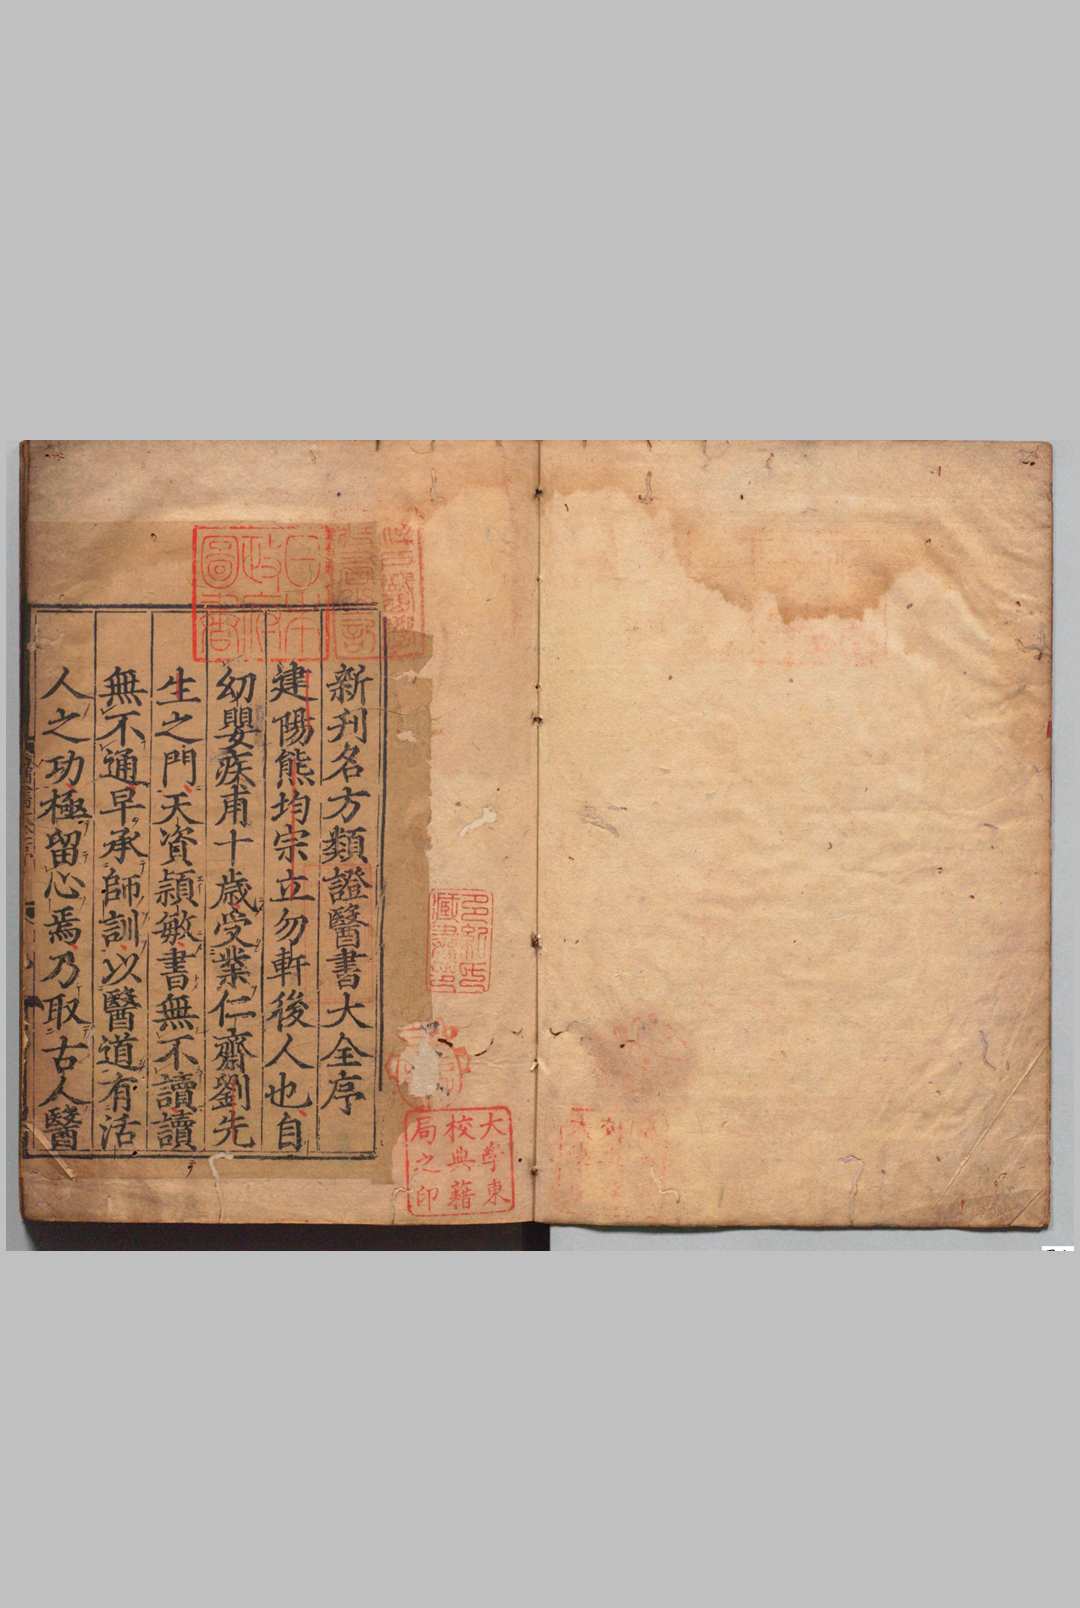 新刊名方類證醫書大全序
建陽熊均宗立勿軒後人也自
幼嬰疾甫十歲受業仁齋劉先
生之門天資頴敏書無不讀讀
無不通早承師訓以醫道有活
人之功極留心焉乃取古人醫
日本
政府
圖書
多紀氏
藏書印
大學東
校典藉
局之印